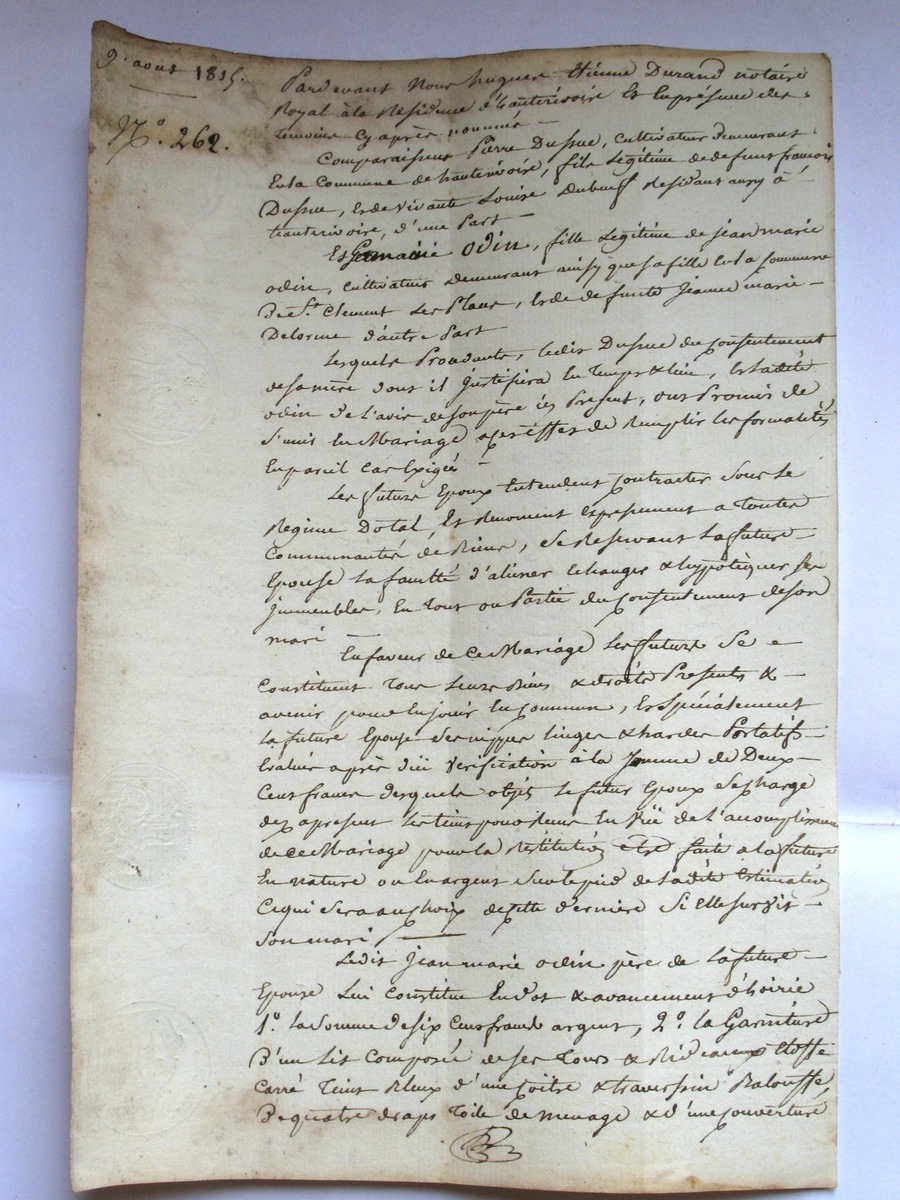 9. aout 1815.
N.° 262.
Pardevant Nous hugues Etienne Durand notaire
Royal à la Résidence d'hauterivoire Et En présence des
temoins Cy après nommés —
Comparaissent Pierre Dussuc, Cultivateur demeurant
En la Commune de hauterivoire, fils Légitime de defunt françois
Dussuc, Et de vivante Louise Dubœuf Residant aussy à
hauterivoire, d'une Part —
Et Odin, fille Légitime de jean marie
odin, Cultivateur Demeurant ainsy que sa fille En la Commune
De St. Clement Les Places, Et de defunte Jeanne marie —
Delorme d'autre Part —
Lesquels Procedants, ledit Dussuc du Consentement
de sa mère dont il justifiera En Temps & lieu, Et ladite
odin De l'avis de son père ici Present, ont Promis de
S'unir En Mariage à cet effet de Remplir les formalités
En pareil Cas Exigés —
Les futurs Epoux Entendent Contracter Sous le
Regime Dotal, Et Renoncent Expressement a Toutes
Communautés de Biens, Se Reservant La future —
Epouse La faculté d'aliéner Echanger & hypotéquer Ses
jmmeubles, En Tout ou Partie du Consentement de son
mari —
En faveur de Ce Mariage Les futurs Se =
Constituent Tous Leurs Biens & droits Presents & —
avenir pour En jouir En Commun, Et Spécialement
la future Epouse Ses nippes linges & hardes Portatifs —
Evalués après düe Vérification à la Somme de Deux —
Cens francs desquels objets Le futur Epoux Se charge
dez apresent Les tenir pour Reçus En Vüe de l'accomplissement
de Ce Mariage pour la Réstitution être faite a la future
En nature ou En argent Sur le pied de Ladite Estimation
Ce qui Sera au Choix de Cette Derniere Si Elle Survit —
Son mari —
Ledit Jean marie odin père de La future —
Epouse Lui Constitue En dot & avancement d'hoirie
1.° la Somme de Six Cens francs argent, 2.° la Garniture
D'un Lit Composée de Ses Tours & Rideaux Etoffe
Carré Teint Bleux d'une & traversin Balouffe,
De quatre draps Toile de menage & d'une Couverture